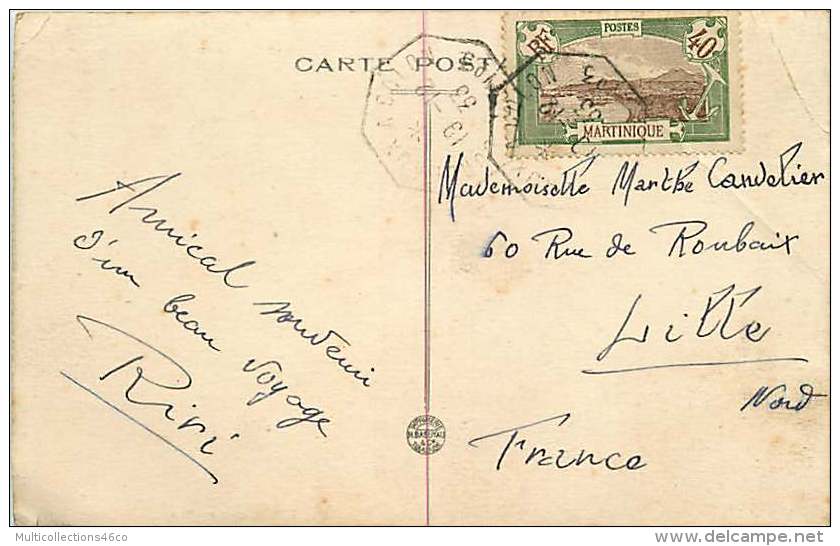 CARTE POSTALE
RF POSTES 40
MARTINIQUE
Amical souvenir
d'un beau voyage
Riri
Mademoiselle Marthe Candelier
60 Rue de Roubaix
Lille
Nord
France
Multicollections46co
delcampe.net